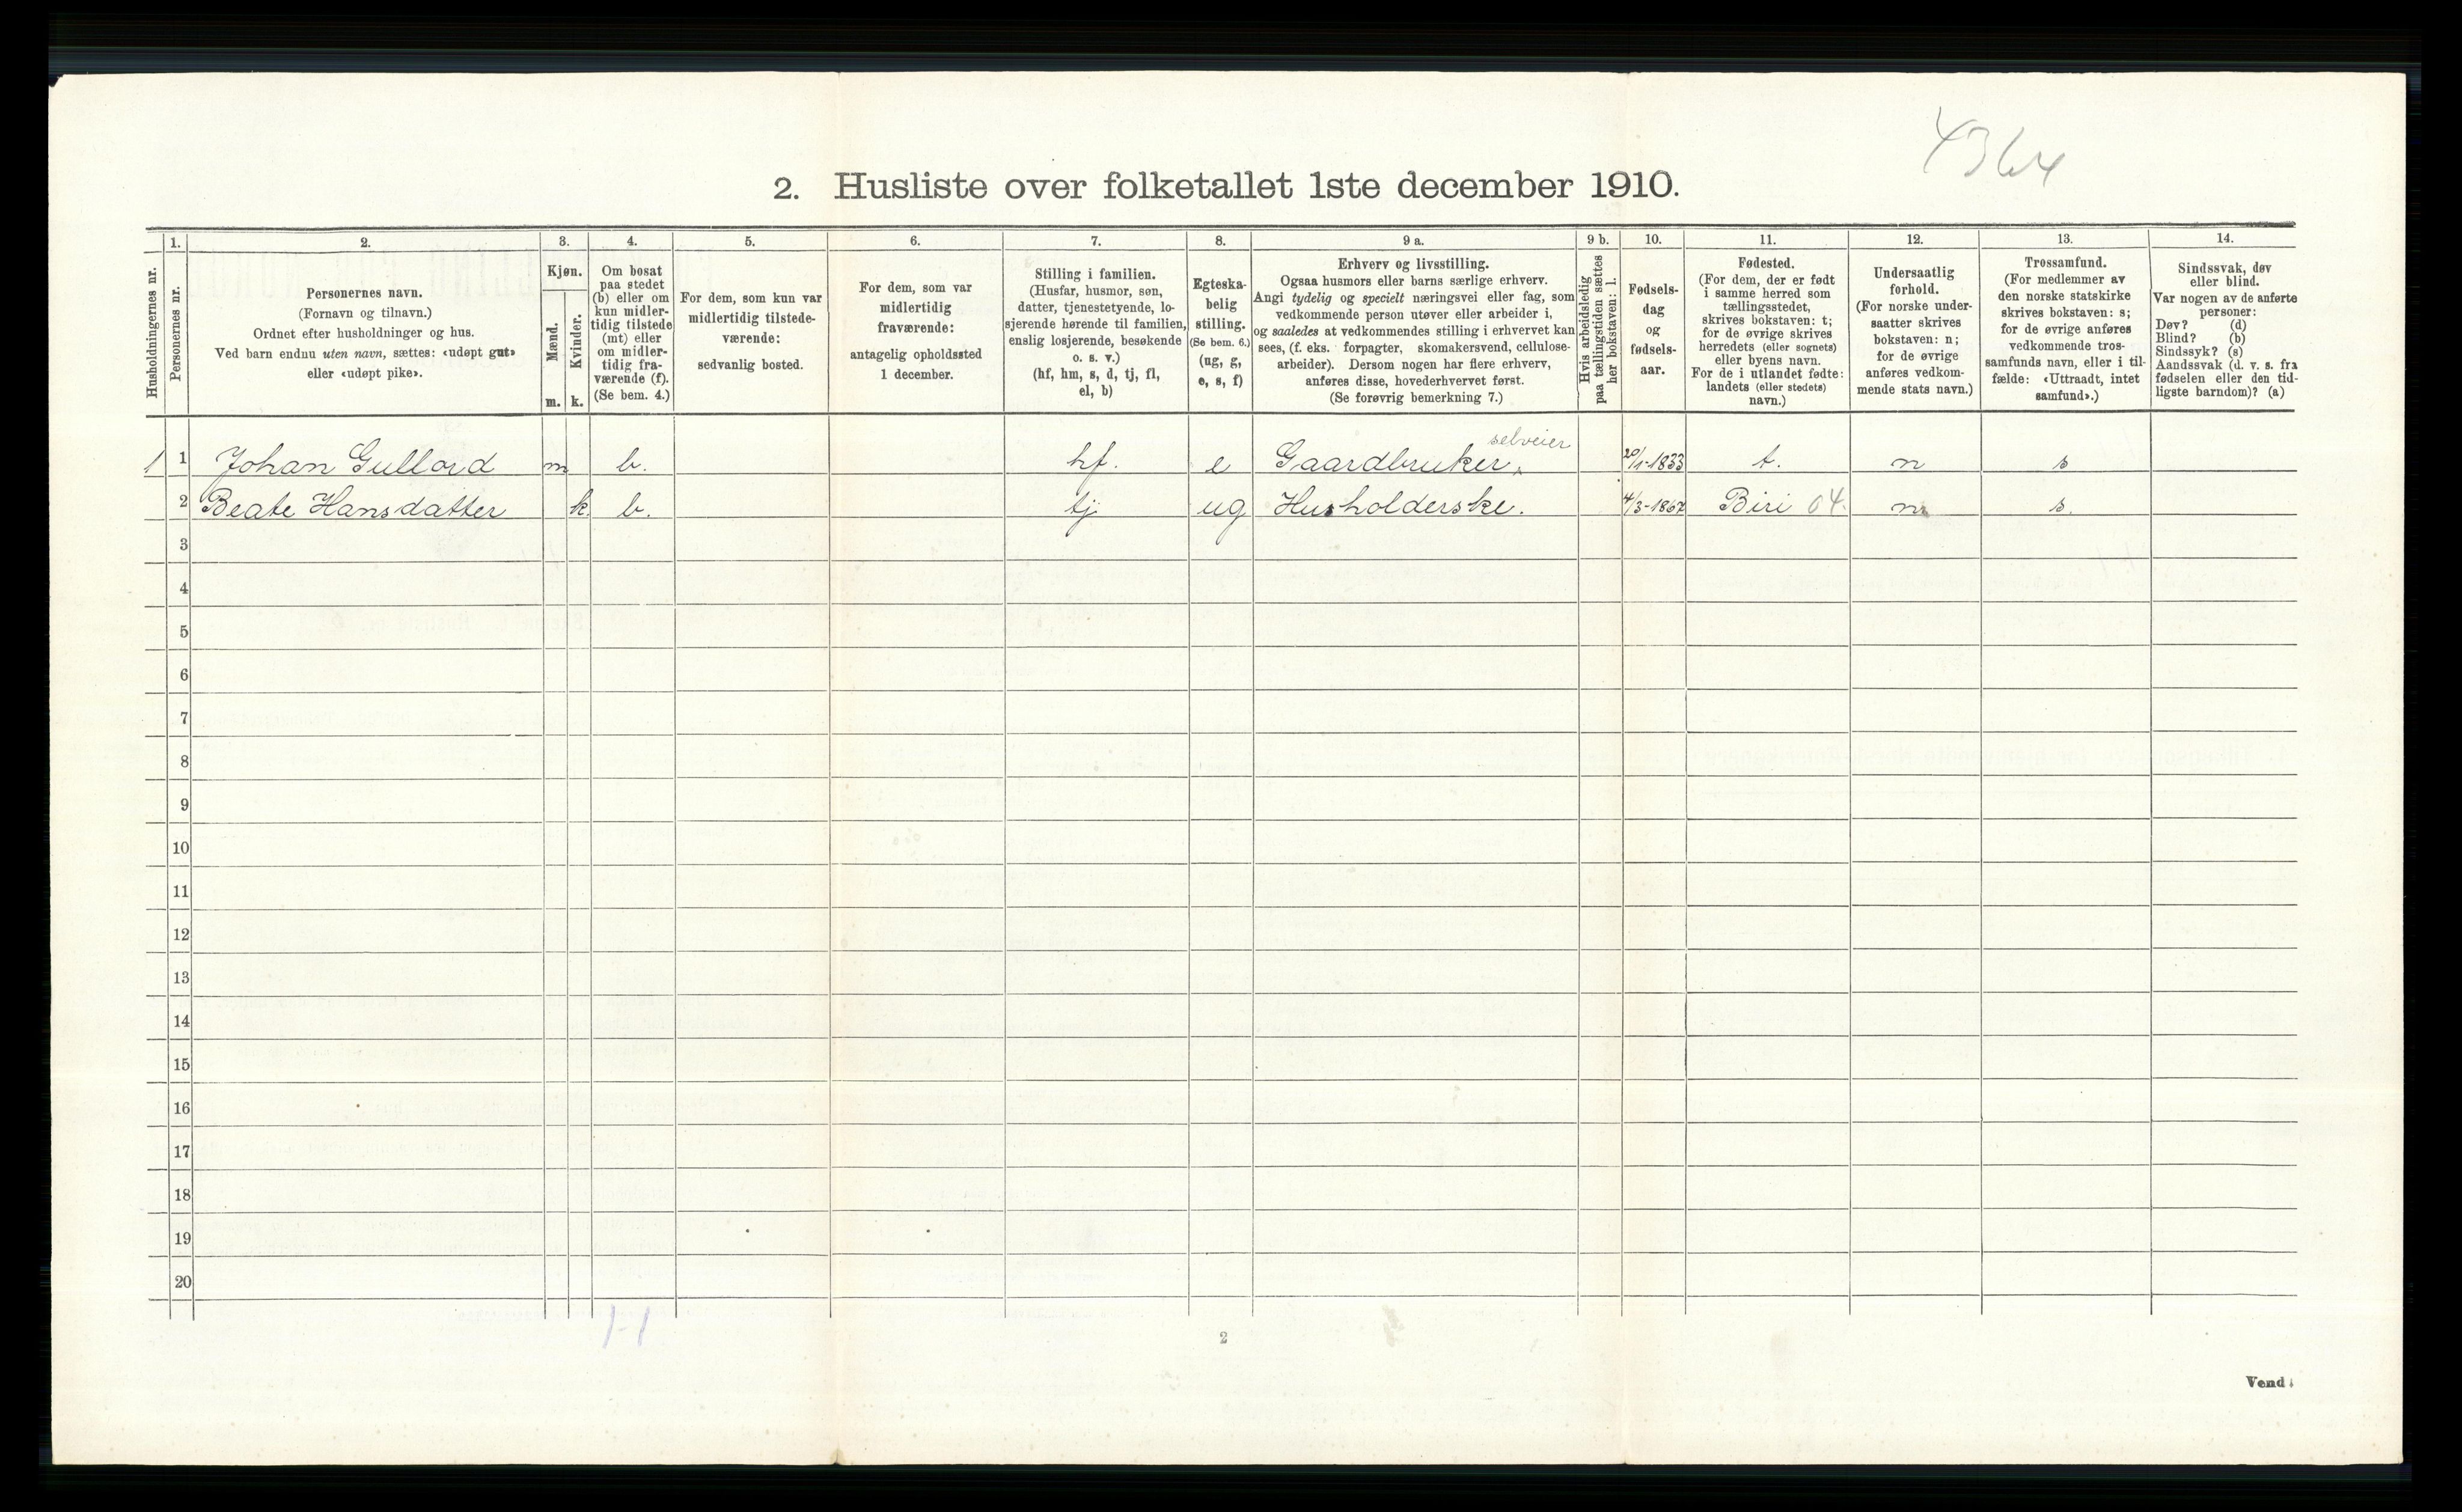 4364
2. Husliste over folketallet 1ste december 1910.
Husholdningernes nr.
1.
Personernes nr.
2.
Personernes navn.
(Fornavn og tilnavn.)
Ordnet efter husholdninger og hus.
Ved barn endnu uten navn, sættes: «udøpt gut»
eller «udøpt pike».
3.
Kjøn.
Mænd.
m.
Kvinder.
k.
4.
Om bosat
paa stedet
(b) eller om
kun midler-
tidig tilstede
(mt) eller
om midler-
tidig fra-
værende (f).
(Se bem. 4.)
5.
For dem, som kun var
midlertidig tilstede-
værende:
sedvanlig bosted.
6.
For dem, som var
midlertidig
fraværende:
antagelig opholdssted
1 december.
7.
Stilling i familien.
(Husfar, husmor, søn,
datter, tjenestetyende, lo-
sjerende hørende til familien,
enslig losjerende, besøkende
o. s. v.)
(hf, hm, s, d, tj, fl,
el, b)
8.
Egteska-
belig
stilling.
(Se bem. 6.)
(ug, g,
e, s, f)
9 a.
Erhverv og livsstilling.
Ogsaa husmors eller barns særlige erhverv.
Angi tydelig og specielt næringsvei eller fag, som
vedkommende person utøver eller arbeider i,
og saaledes at vedkommendes stilling i erhvervet kan
sees, (f. eks. forpagter, skomakersvend, cellulose-
arbeider). Dersom nogen har flere erhverv,
anføres disse, hovederhvervet først.
(Se forøvrig bemerkning 7.)
9 b.
Hvis arbeidsledig
paa tællingstiden sættes
her bokstaven: l.
10.
Fødsels-
dag
og
fødsels-
aar.
11.
Fødested.
(For dem, der er født
i samme herred som
tællingsstedet,
skrives bokstaven: t;
for de øvrige skrives
herredets (eller sognets)
eller byens navn.
For de i utlandet fødte:
landets (eller stedets)
navn.)
12.
Undersaatlig
forhold.
(For norske under-
saatter skrives
bokstaven: n;
for de øvrige
anføres vedkom-
mende stats navn.)
13.
Trossamfund.
(For medlemmer av
den norske statskirke
skrives bokstaven: s;
for de øvrige anføres
vedkommende tros-
samfunds navn, eller i til-
fælde: «Uttraadt, intet
samfund».)
14.
Sindssvak, døv
eller blind.
Var nogen av de anførte
personer:
Døv? (d)
Blind? (b)
Sindssyk? (s)
Aandssvak (d. v. s. fra
fødselen eller den tid-
ligste barndom)? (a)
selveier
1 1 Johan Gullord m b. hf. e Gaardbruker 20/1-1833 t. n s
2 Beate Hansdatter k. b. tj ug Husholderske. 4/3-1867 Biri 04. n s.
3
4
5
6
7
8
9
10
11
12
13
14
15
16
17
18
19
20
1-1
2
Vend!